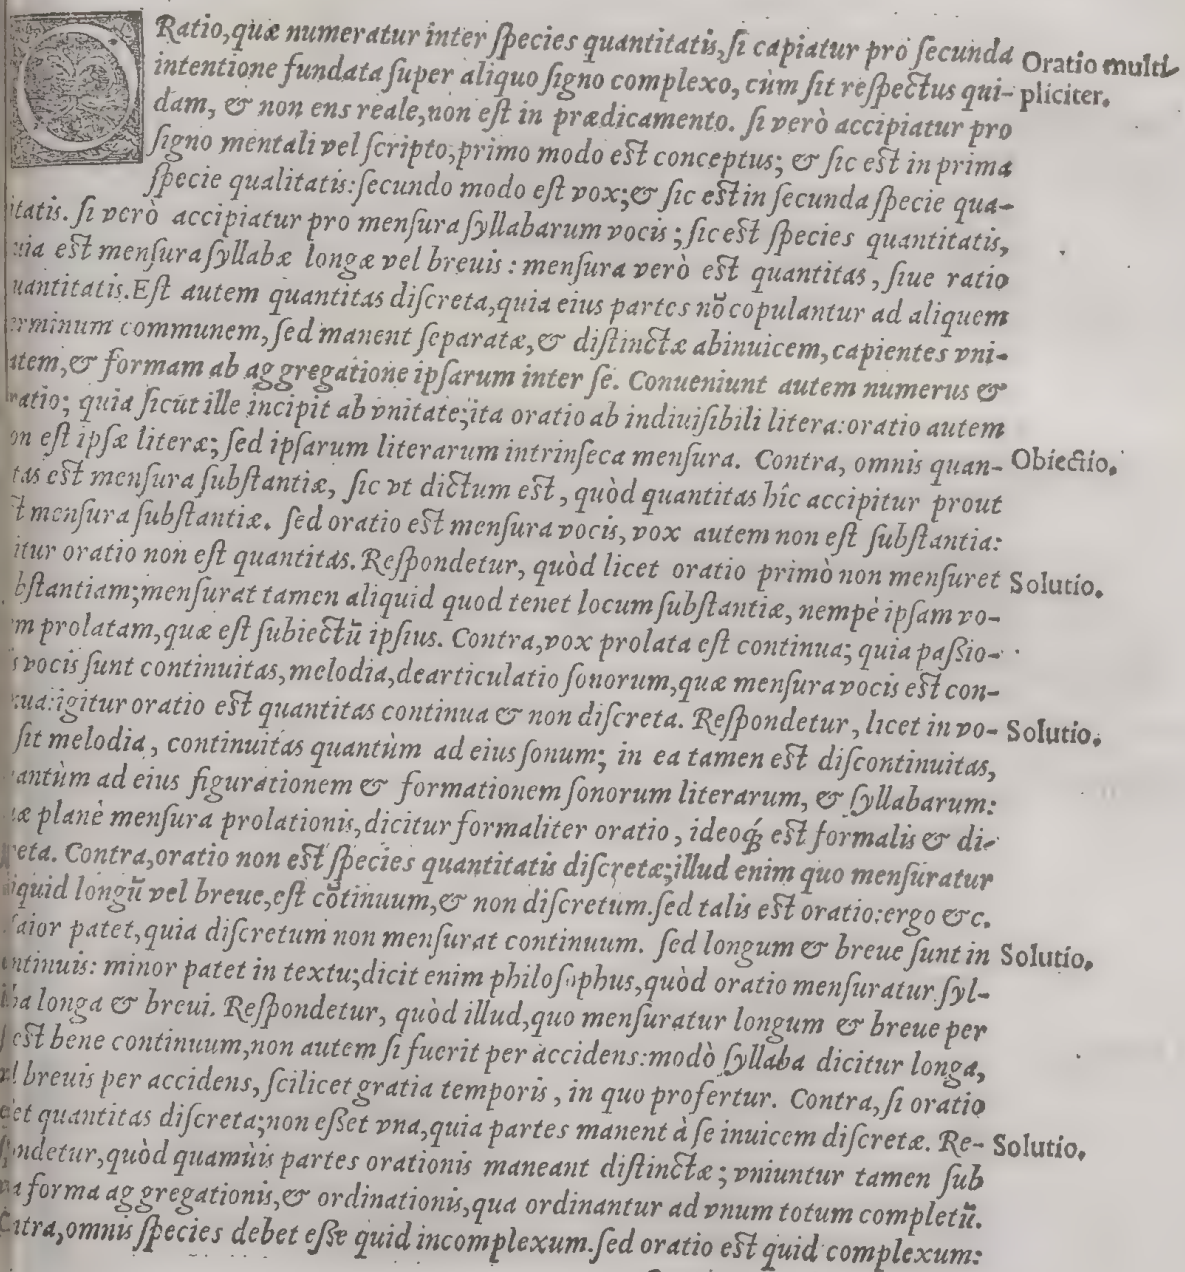 ORatio, quæ numeratur inter ſpecies quantitatis, ſi capiatur pro ſecunda
Oratio multi-
intentione fundata ſuper aliquo ſigno complexo, cùm ſit reſpectus qui-
pliciter.
dam, & non ens reale, non eſt in prædicamento. ſi verò accipiatur pro
ſigno mentali vel ſcripto, primo modo eſt conceptus; & ſic eſt in prima
ſpecie qualitatis: ſecundo modo eſt vox; & ſic eſt in ſecunda ſpecie qua-
itatis. ſi verò accipiatur pro menſura ſyllabarum vocis; ſic eſt ſpecies quantitatis,
uia eſt menſura ſyllabæ longæ vel breuis: menſura verò eſt quantitas, ſiue ratio
uantitatis. Eſt autem quantitas diſcreta, quia eius partes nõ copulantur ad aliquem
erminum communem, ſed manent ſeparatæ, & diſtinctæ abinuicem, capientes vni-
atem, & formam ab aggregatione ipſarum inter ſe. Conueniunt autem numerus &
ratio; quia ſicut ille incipit ab vnitate; ita oratio ab indiuiſibili litera: oratio autem
on eſt ipſæ literæ; ſed ipſarum literarum intrinſeca menſura. Contra, omnis quan-
Obiectio.
tas eſt menſura ſubſtantiæ, ſic vt dictum eſt, quòd quantitas hîc accipitur prout
t menſura ſubſtantiæ. ſed oratio eſt menſura vocis, vox autem non eſt ſubſtantia:
itur oratio non eſt quantitas. Reſpondetur, quòd licet oratio primò non menſuret
Solutio.
bſtantiam; menſurat tamen aliquid quod tenet locum ſubſtantiæ, nempè ipſam vo-
m prolatam, quæ eſt ſubiectũ ipſius. Contra, vox prolata eſt continua; quia paßio-
s vocis ſunt continuitas, melodia, dearticulatio ſonorum, quæ menſura vocis eſt con-
ua: igitur oratio eſt quantitas continua & non diſcreta. Reſpondetur, licet in vo-
Solutio.
ſit melodia, continuitas quantùm ad eius ſonum; in ea tamen eſt diſcontinuitas,
antùm ad eius figurationem & formationem ſonorum literarum, & ſyllabarum:
æ planè menſura prolationis, dicitur formaliter oratio, ideoq́; eſt formalis & di-
reta. Contra, oratio non eſt ſpecies quantitatis diſcretæ; illud enim quo menſuratur
iquid longũ vel breue, eſt cõtinuum, & non diſcretum. ſed talis eſt oratio: ergo &c.
aior patet, quia diſcretum non menſurat continuum. ſed longum & breue ſunt in
Solutio.
ntinuis: minor patet in textu; dicit enim philoſophus, quòd oratio menſuratur ſyl-
ba longa & breui. Reſpondetur, quòd illud, quo menſuratur longum & breue per
eſt bene continuum, non autem ſi fuerit per accidens: modò ſyllaba dicitur longa,
l breuis per accidens, ſcilicet gratia temporis, in quo profertur. Contra, ſi oratio
et quantitas diſcreta; non eſſet vna, quia partes manent à ſe inuicem diſcretæ. Re-
Solutio.
ndetur, quòd quamuis partes orationis maneant diſtinctæ; vniuntur tamen ſub
a forma aggregationis, & ordinationis, qua ordinantur ad vnum totum completũ.
Cõtra, omnis ſpecies debet eſſe quid incomplexum. ſed oratio eſt quid complexum: